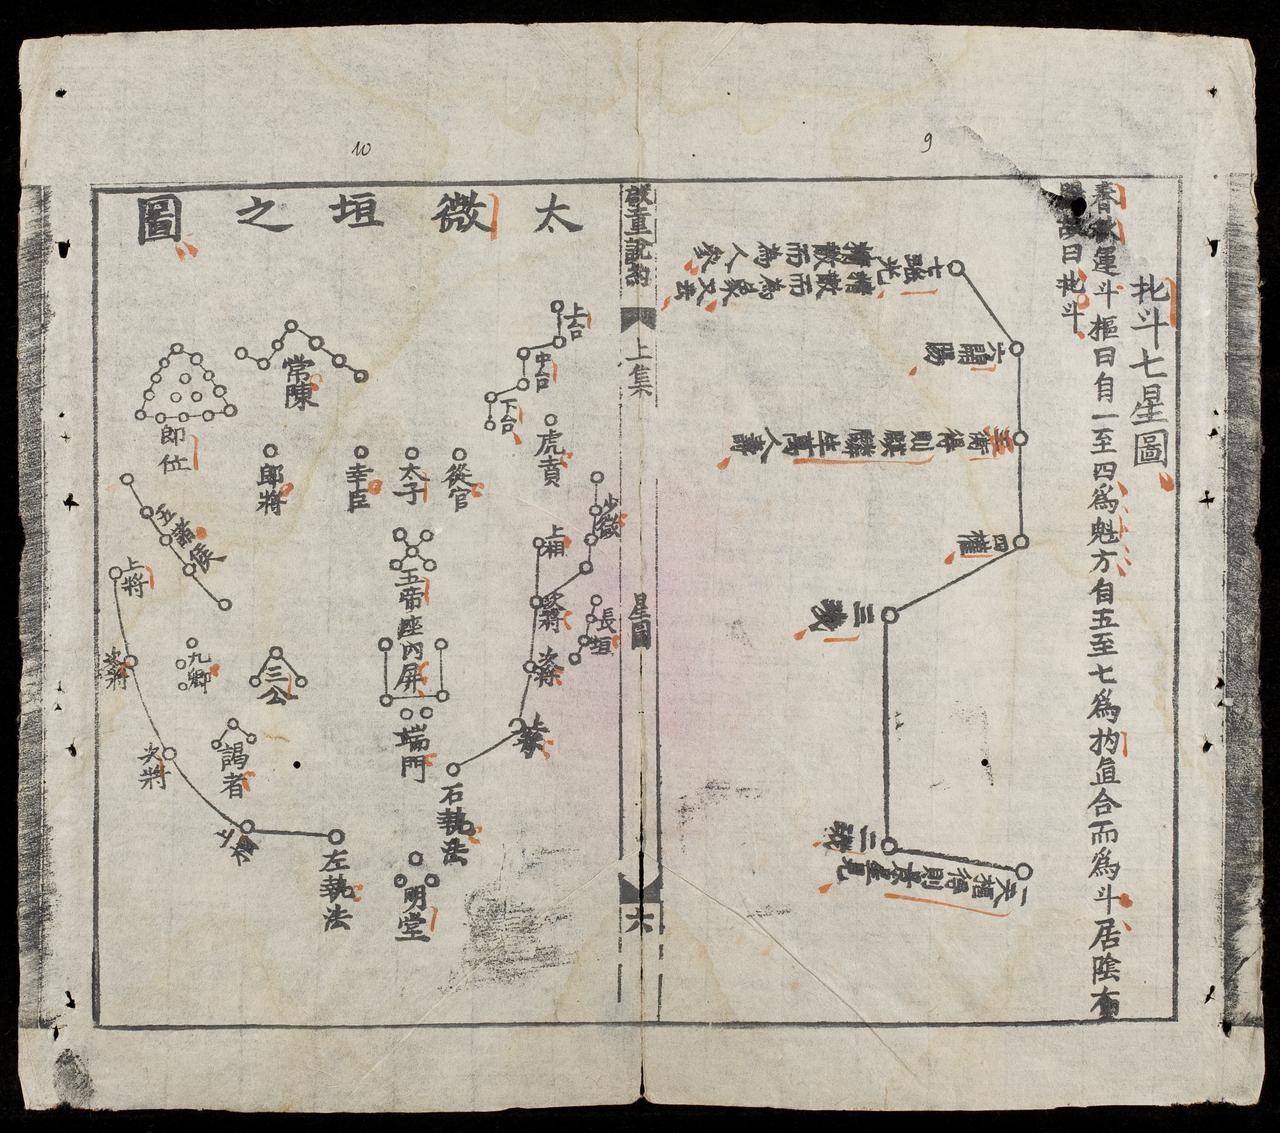 北斗七星圖
春秋運斗樞曰自一至四爲魁方自五至七爲杓直合而爲斗居陰布
陽故曰北斗
七瑤光
精散而為人參
精散而為
六開陽
五衡得則麒麟生萬人壽
四權
三璣
二璇
一天樞得則景星見
啟童說約
上集
星圖
六
太微垣之圖
上台
中台
下台
虎賁
少微
長垣
上相
次將
次將
上將
右執法
常陳
從官
太子
幸臣
郎將
郎位
五帝座
內屏
端門
明堂
五諸侯
九卿
三公
謁者
上將
次將
次將
上相
左執法
9
10